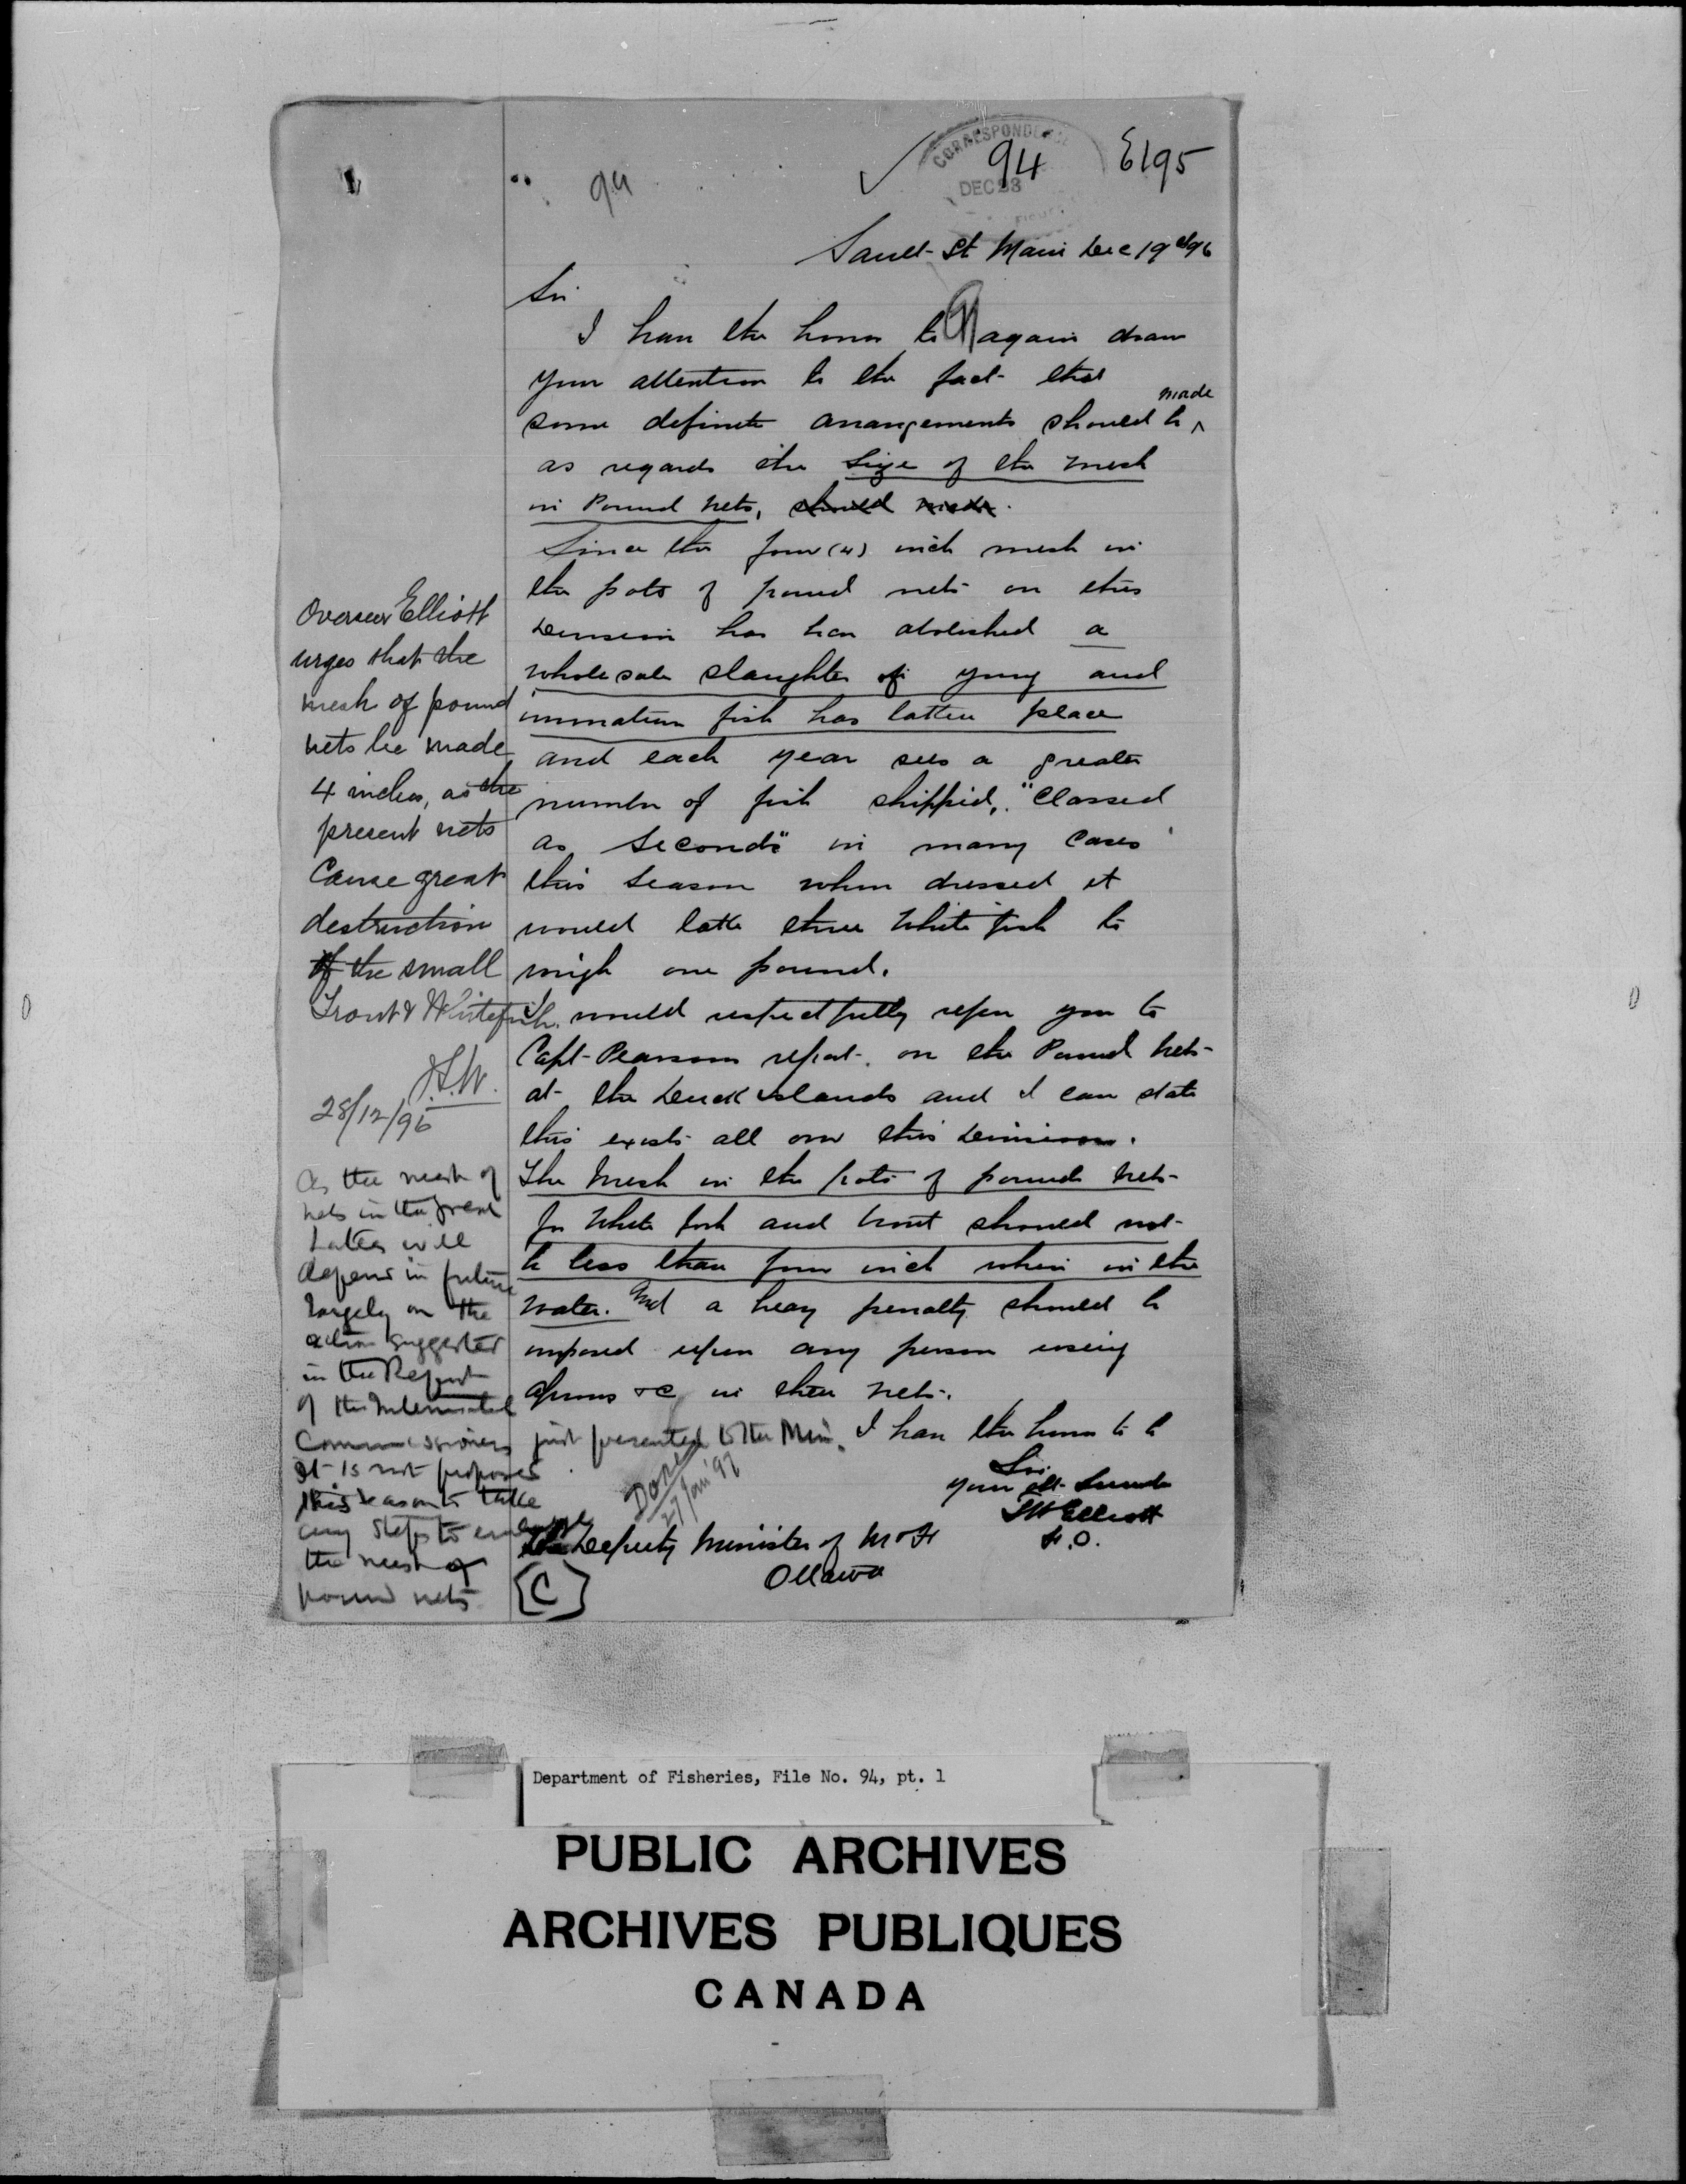 CORRESPONDENCE
DEC 23
94
94
E195
Sault St Marie Dec 19th 96
Sir
I have the honor to again draw
your attention to the fact that
some definite arrangements should be made
as regards the size of the mesh
in Pound nets, should made.
Since the four (4) inch mesh in
the pots of pound nets on this
Division has been abolished a
wholesale slaughter of young and
immature fish has taken place
and each year sees a greater
number of fish shipped, "Classed
as Seconds" in many cases
this season when dressed it
would take three White fish to
weigh one pound.
I would respectfully refer you to
Capt Pearsons report on the Pound nets
at the Duck Islands and I can state
this exists all over this Division.
The Mesh in the pots of pound nets
for White fish and trout should not
be less than four inch when in the
water. And a heavy penalty should be
imposed upon any person using
aprons &c in their nets.
I have the honor to be
Sir
your obt Servant
Elliott
F.O.
The Deputy Minister of M & F
Ottawa
[C]
Overseer Elliott
urges that the
mesh of pound
nets be made
4 inches, as the
present nets
Cause great
destruction
of the small
Trout & Whitefish.
28/12/96
As the mesh of
nets in the great
Lakes will
depend in future
largely on the
action suggested
in the Report
of the International
Commissioners just presented to the Min.
It is not proposed
this season to take
any steps to enlarge
the mesh of
pound nets
Done
27 Jan '97
Department of Fisheries, File No. 94, pt. 1
PUBLIC ARCHIVES
ARCHIVES PUBLIQUES
CANADA